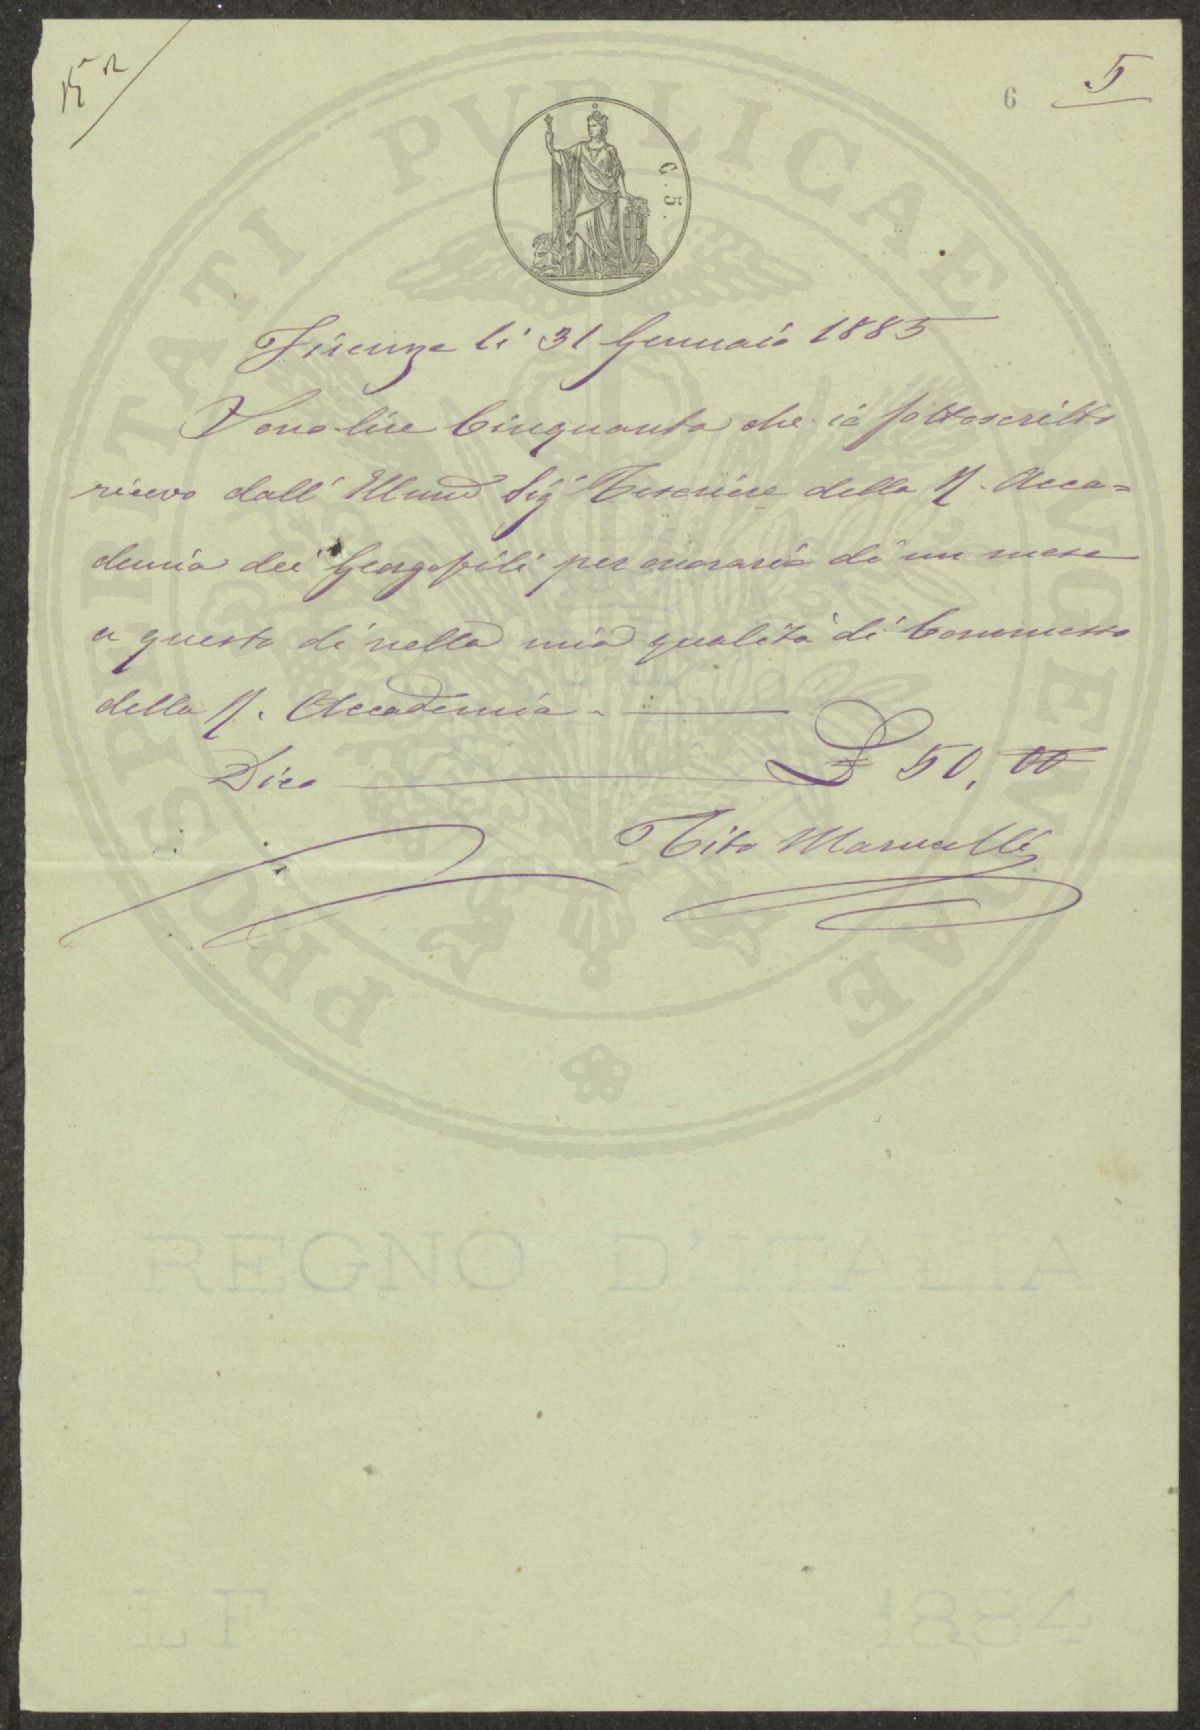 5
6
C. 5.
PROSPERITATI PUBLICAE AUGENDAE
Firenze li 31 Gennaio 1885
Sono lire Cinquanta che io sottoscritto
ricevo dall' Illmo Sig Tesoriere della R. Acca=
demia dei Georgofili per onorario di un mese
a questo dì nella mia qualità di Commesso
della R. Accademia.
Dico £ 50, 00
Tito Marucelli
REGNO D'ITALIA
LF 1884